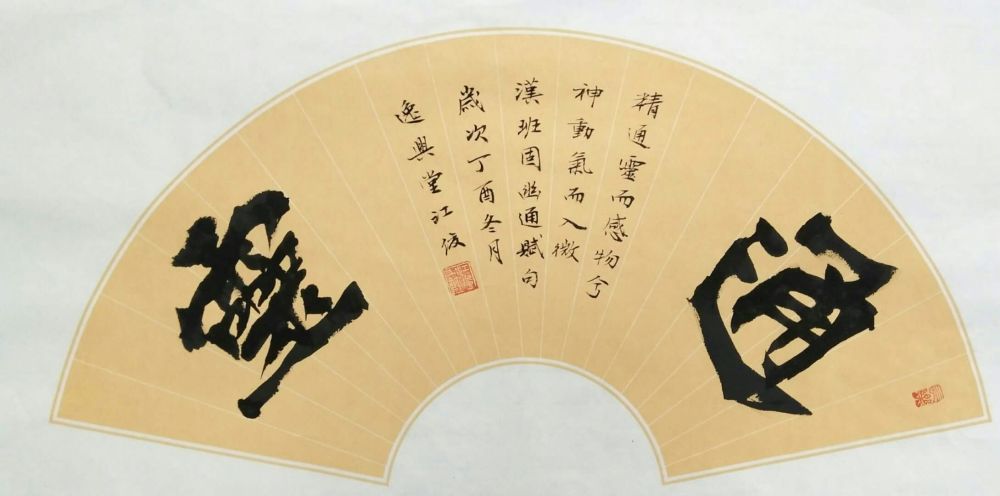 通靈
精通靈而感物兮
神動氣而入微
漢班固幽通賦句
歲次丁酉冬月
逸興堂江俊